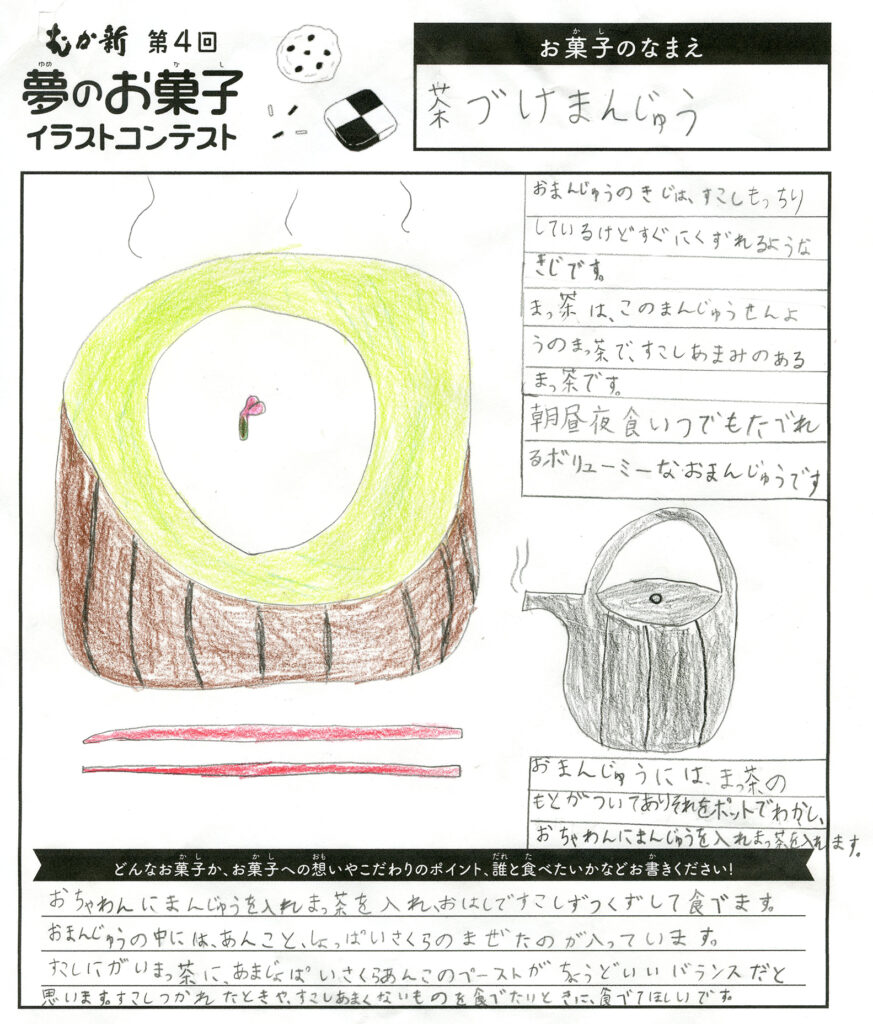 むか新 第4回
夢のお菓子
イラストコンテスト
お菓子のなまえ
茶づけまんじゅう
おまんじゅうのきじは、すこしもっちり
しているけどすぐにくずれるような
きじです。
まっ茶は、このまんじゅうせんよ
うのまっ茶で、すこしあまみのある
まっ茶です。
朝昼夜食いつでもたべれ
るボリューミーなおまんじゅうです
おまんじゅうには、まっ茶の
もとがついてありそれをポットでわかし、
おちゃわんにまんじゅうを入れまっ茶を入れます。
どんなお菓子か、お菓子への想いやこだわりのポイント、誰と食べたいかなどお書きください!
おちゃわんにまんじゅうを入れまっ茶を入れ、おはしですこしずつくずして食べます。
おまんじゅうの中には、あんこと、しょっぱいさくらのまぜたのが入っています。
すこしにがいまっ茶に、あまじょぱいさくらあんこのペーストがちょうどいいバランスだと
思います。すこしつかれたときや、すこしあまくないものを食べたりときに、食べてほしいです。